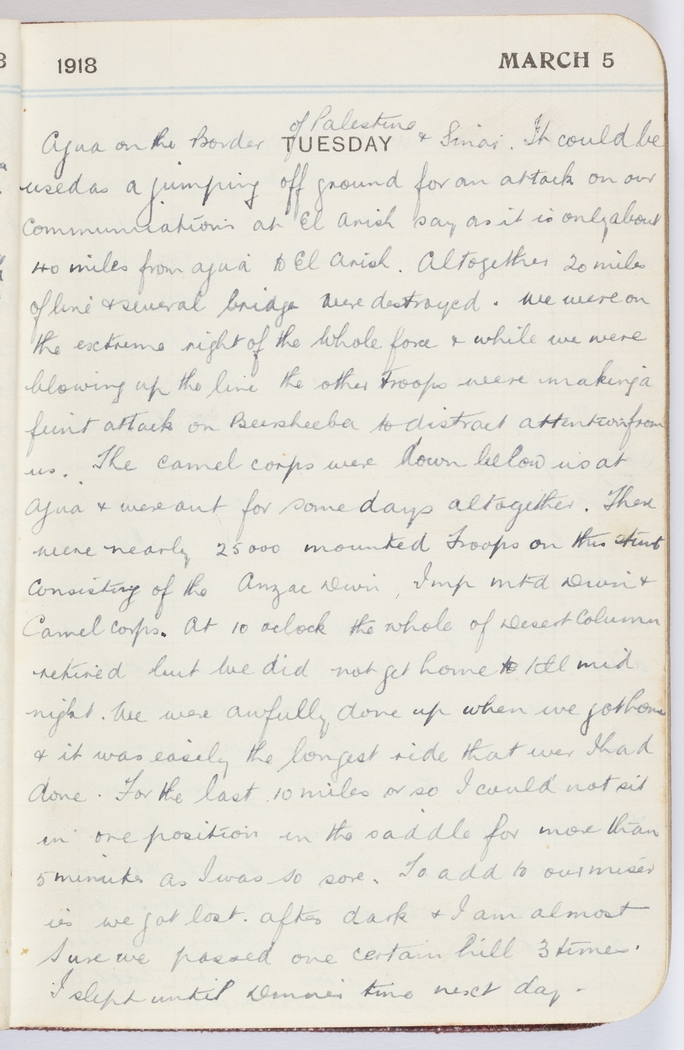 1918 MARCH 5
TUESDAY
of Palestine
Agua on the Border & Sinai. It could be
used as a jumping off ground for an attack on our
Communications at El Arish say as it is only about
40 miles from agua to El Arish. Altogether 20 miles
of line & several bridge were destroyed. We were on
the extreme right of the whole force & while we were
blowing up the line the other troops were making a
feint attack on Beersheeba to distract attention from
us. The camel corps were down below us at
Agua & were out for some days altogether. There
were nearly 25000 mounted troops on this stunt
Consisting of the Anzac Divn, Imp mtd Divn &
Camel corps. At 10 oclock the whole of Desert Column
retired but we did not get home to till mid
night. We were awfully done up when we got home
& it was easely the longest ride that ever I had
done. For the last 10 miles or so I could not sit
in one position in the saddle for more than
5 minutes as I was so sore. To add to our miser
ies we got lost. after dark & I am almost
Sure we passed one certain hill 3 times.
I slept until time next day.